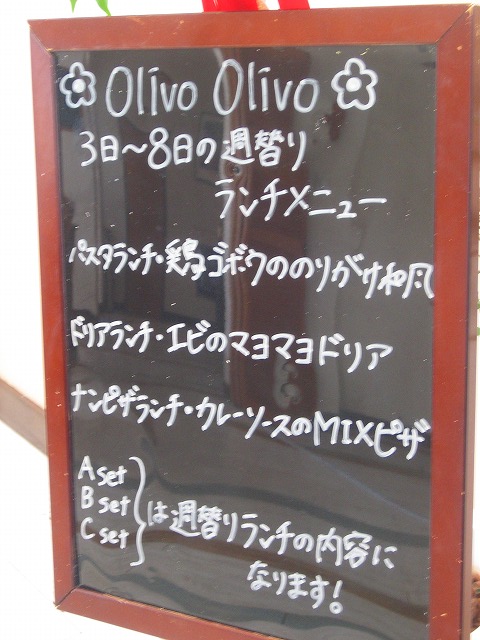 Olivo Olivo
3日～8日の週替り
ランチメニュー
パスタランチ・鶏ゴボウののりがけ和風
ドリアランチ・エビのマヨマヨドリア
ナンピザランチ・カレーソースのMIXピザ
A set
B set
C set
は週替りランチの内容に
なります!